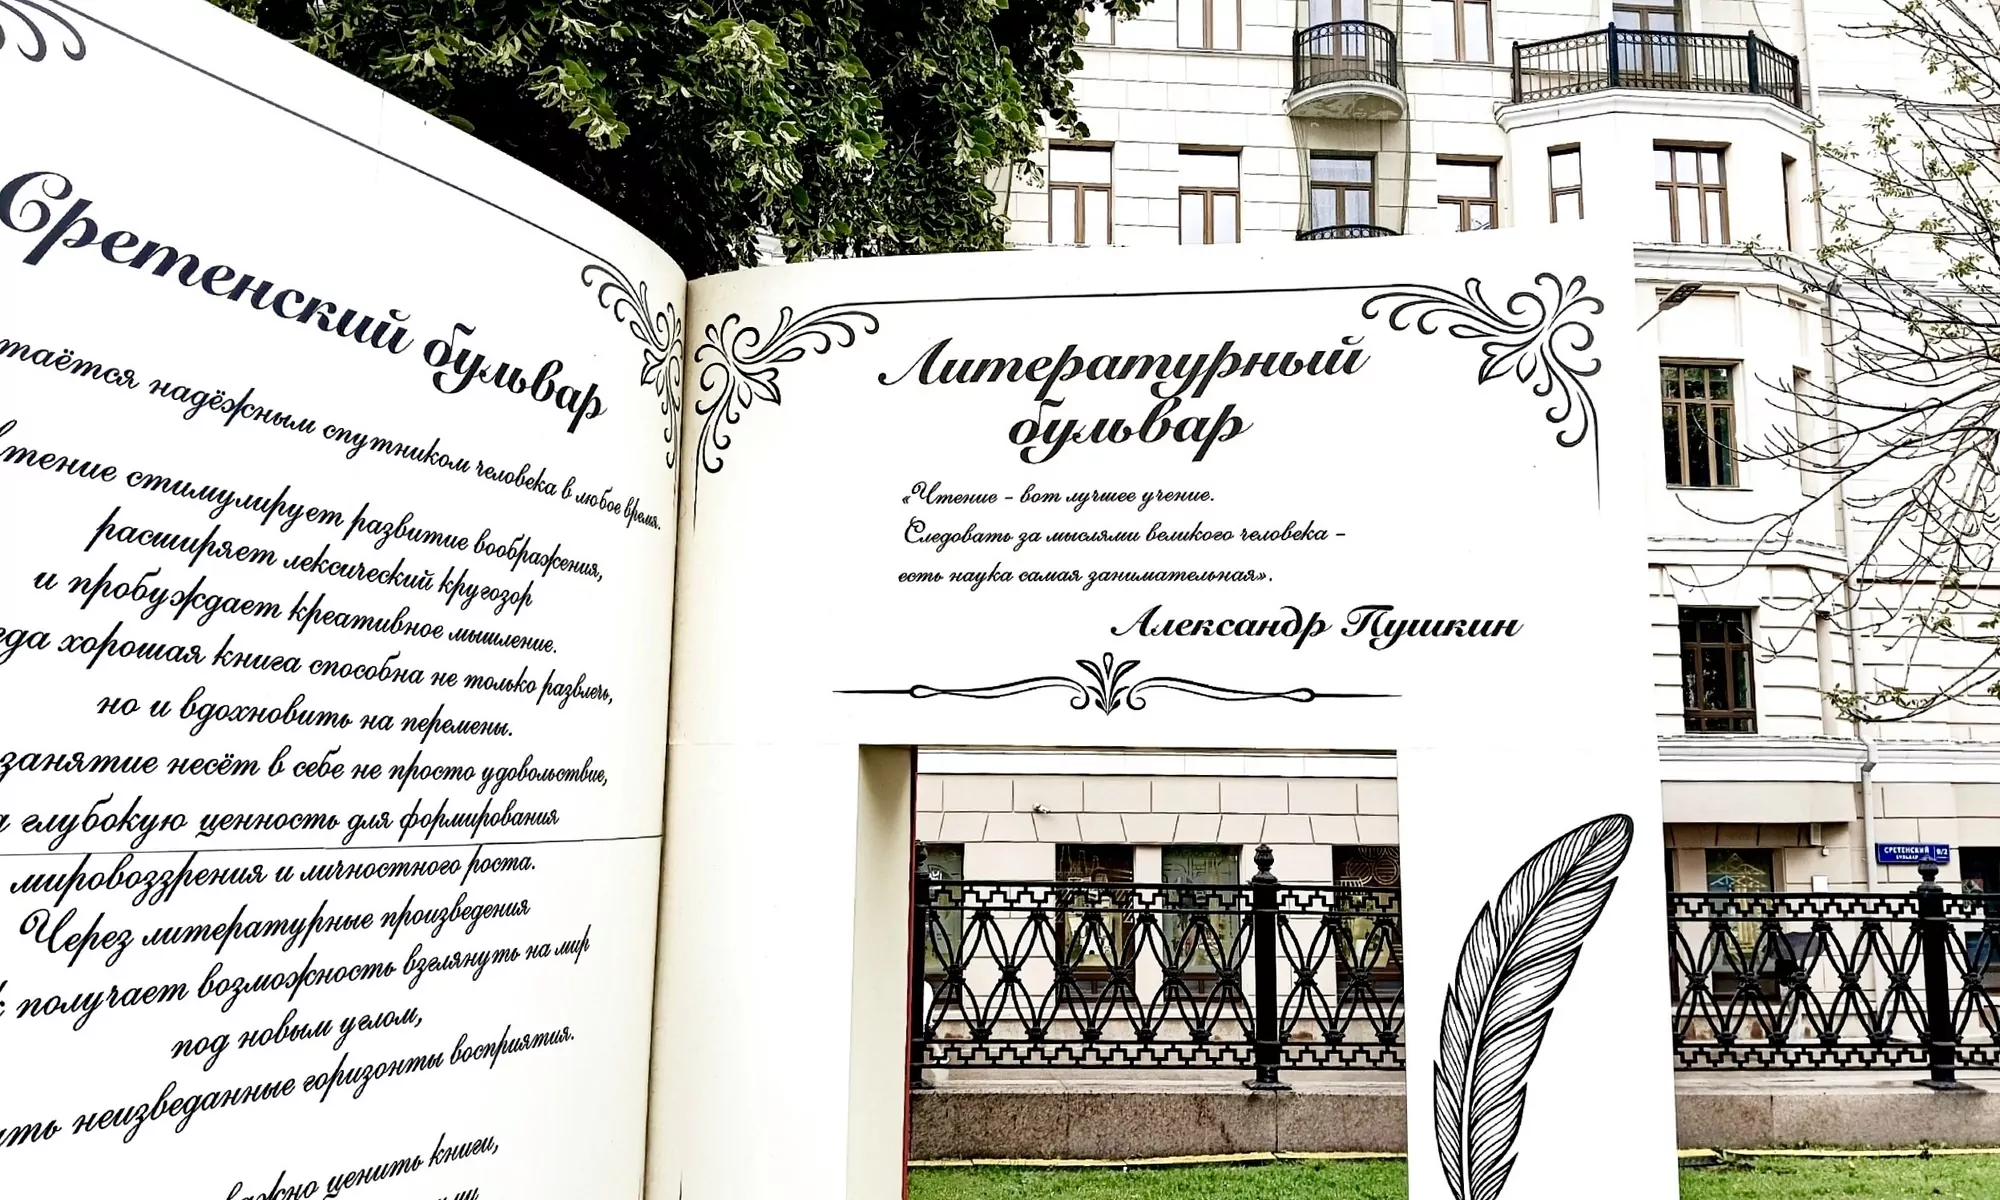 Сретенский бульвар
надёжным спутником человека в любое время.
стимулирует развитие воображения,
расширяет лексический кругозор
и пробуждает креативное мышление.
хорошая книга способна не только развлечь,
но и вдохновить на перемены.
занятие несёт в себе не просто удовольствие,
глубокую ценность для формирования
мировоззрения и личностного роста.
Через литературные произведения
получает возможность взглянуть на мир
под новым углом,
неизведанные горизонты восприятия.
ценить книги,
Литературный
бульвар
«Чтение – вот лучшее учение.
Следовать за мыслями великого человека –
есть наука самая занимательная».
Александр Пушкин
СРЕТЕНСКИЙ 9/2
БУЛЬВАР